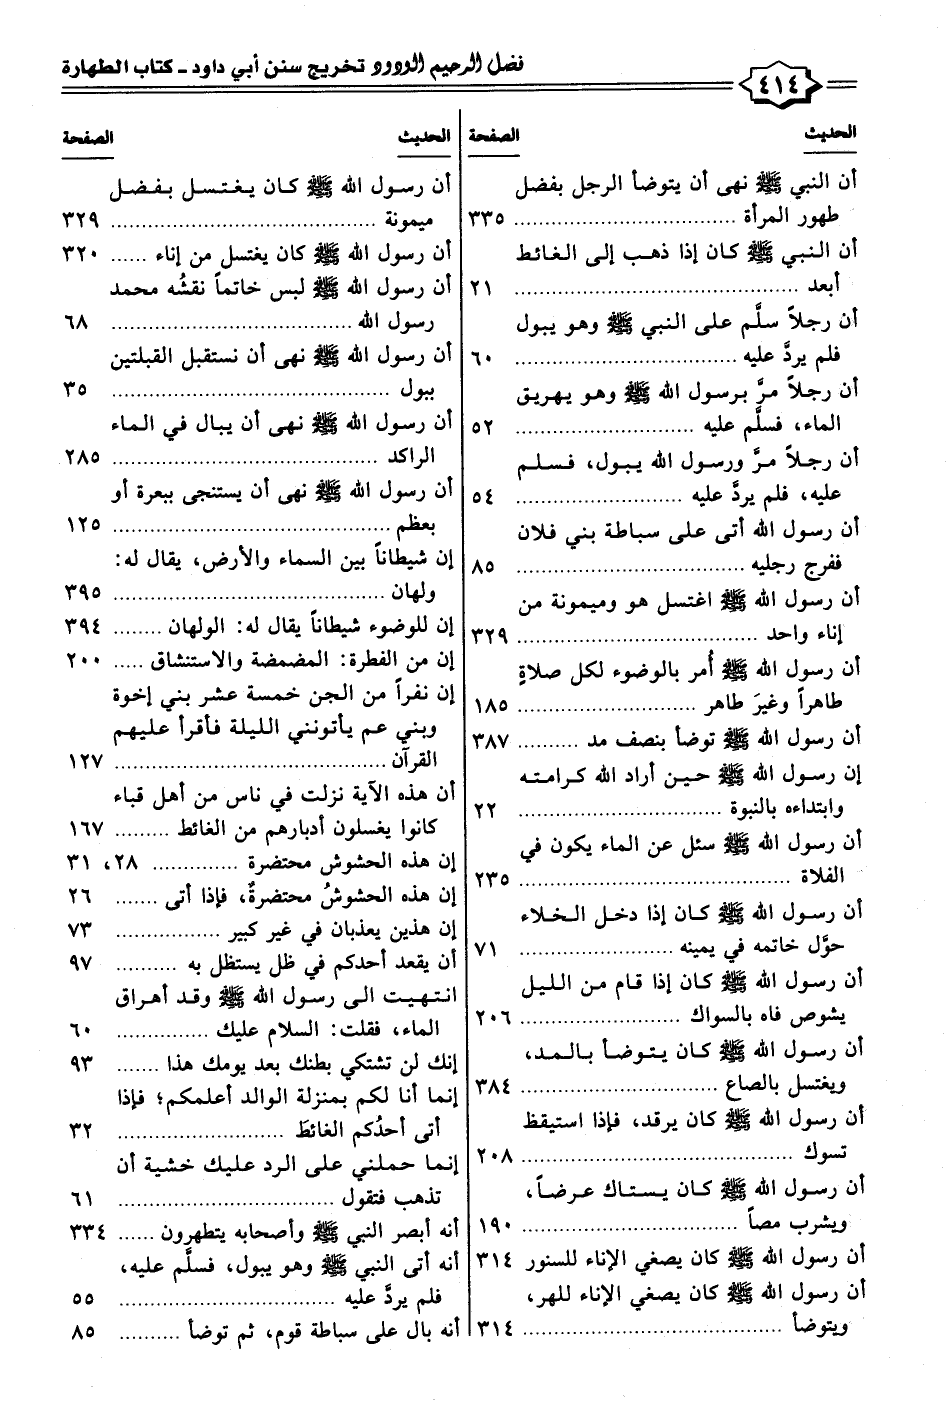 فضل الرحيم الودود تخريج سنن أبي داود - كتاب الطهارة
٤١٤
الحديث الصفحة
أن النبي ﷺ نهى أن يتوضأ الرجل بفضل
طهور المرأة .......... ٣٣٥
أن النبي ﷺ كان إذا ذهب إلى الغائط
أبعد .......... ٢١
أن رجلاً سلَّم على النبي ﷺ وهو يبول
فلم يردَّ عليه .......... ٦٠
أن رجلاً مرَّ برسول الله ﷺ وهو يهريق
الماء، فسلَّم عليه .......... ٥٢
أن رجلاً مرَّ ورسول الله يبول، فسلم
عليه، فلم يردَّ عليه .......... ٥٤
أن رسول الله أتى على سباطة بني فلان
ففرج رجليه .......... ٨٥
أن رسول الله ﷺ اغتسل هو وميمونة من
إناء واحد .......... ٣٢٩
أن رسول الله ﷺ أُمر بالوضوء لكل صلاةٍ
طاهراً وغيرَ طاهر .......... ١٨٥
أن رسول الله ﷺ توضأ بنصف مد .......... ٣٨٧
إن رسول الله ﷺ حين أراد الله كرامته
وابتداءه بالنبوة .......... ٢٢
أن رسول الله ﷺ سئل عن الماء يكون في
الفلاة .......... ٢٣٥
أن رسول الله ﷺ كان إذا دخل الخلاء
حوَّل خاتمه في يمينه .......... ٧١
أن رسول الله ﷺ كان إذا قام من الليل
يشوص فاه بالسواك .......... ٢٠٦
أن رسول الله ﷺ كان يتوضأ بالمد،
ويغتسل بالصاع .......... ٣٨٤
أن رسول الله ﷺ كان يرقد، فإذا استيقظ
تسوك .......... ٢٠٨
أن رسول الله ﷺ كان يستاك عرضاً،
ويشرب مصاً .......... ١٩٠
أن رسول الله ﷺ كان يصغي الإناء للسنور ٣١٤
أن رسول الله ﷺ كان يصغي الإناء للهر،
ويتوضأ .......... ٣١٤
الحديث الصفحة
أن رسول الله ﷺ كان يغتسل بفضل
ميمونة .......... ٣٢٩
أن رسول الله ﷺ كان يغتسل من إناء ...... ٣٢٠
أن رسول الله ﷺ لبس خاتماً نقشُه محمد
رسول الله .......... ٦٨
أن رسول الله ﷺ نهى أن نستقبل القبلتين
ببول .......... ٣٥
أن رسول الله ﷺ نهى أن يبال في الماء
الراكد .......... ٢٨٥
أن رسول الله ﷺ نهى أن يستنجى ببعرة أو
بعظم .......... ١٢٥
إن شيطاناً بين السماء والأرض، يقال له:
ولهان .......... ٣٩٥
إن للوضوء شيطاناً يقال له: الولهان ........ ٣٩٤
إن من الفطرة: المضمضة والاستنشاق ..... ٢٠٠
إن نفراً من الجن خمسة عشر بني إخوة
وبني عم يأتونني الليلة فأقرأ عليهم
القرآن .......... ١٢٧
أن هذه الآية نزلت في ناس من أهل قباء
كانوا يغسلون أدبارهم من الغائط ......... ١٦٧
إن هذه الحشوش محتضرة .......... ٢٨، ٣١
إن هذه الحشوشُ محتضرةٌ، فإذا أتى ....... ٢٦
إن هذين يعذبان في غير كبير .......... ٧٣
أن يقعد أحدكم في ظل يستظل به .......... ٩٧
انتهيت الى رسول الله ﷺ وقد أهراق
الماء، فقلت: السلام عليك .......... ٦٠
إنك لن تشتكي بطنك بعد يومك هذا ....... ٩٣
إنما أنا لكم بمنزلة الوالد أعلمكم؛ فإذا
أتى أحدُكم الغائطَ .......... ٣٢
إنما حملني على الرد عليك خشية أن
تذهب فتقول .......... ٦١
أنه أبصر النبي ﷺ وأصحابه يتطهرون ...... ٣٣٤
أنه أتى النبي ﷺ وهو يبول، فسلَّم عليه،
فلم يردَّ عليه .......... ٥٥
أنه بال على سباطة قوم، ثم توضأ .......... ٨٥